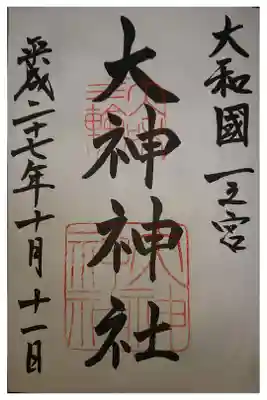 大和國一之宮
大神神社
平成二十七年十月十一日